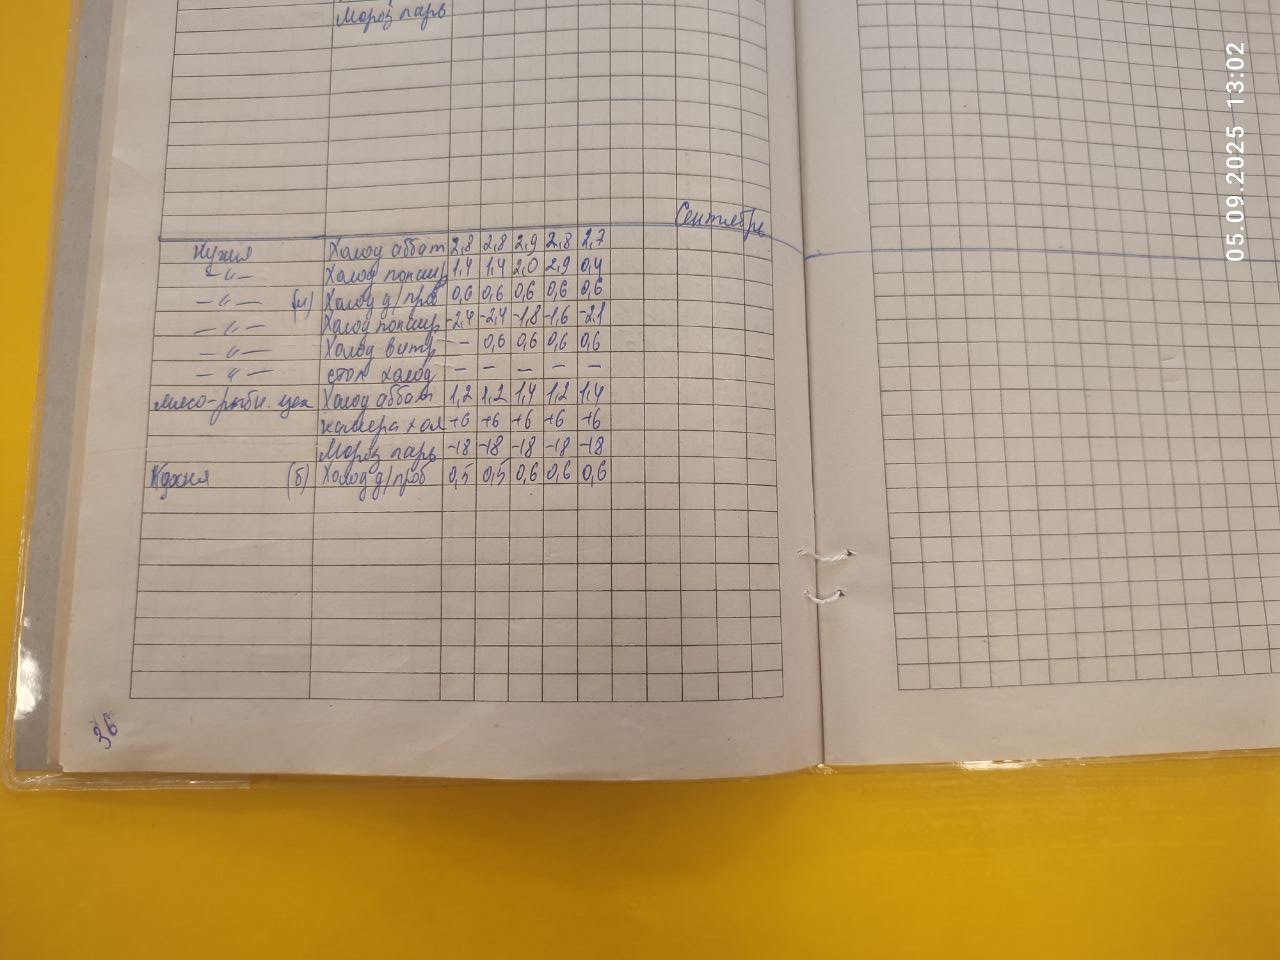 Мороз парь
Сентябрь
Кухня Холод аббат 2,8 2,8 2,9 2,8 2,7
–〃– Холод попаир 1,4 1,4 2,0 2,9 0,4
–〃– (м) Холод д/проб 0,6 0,6 0,6 0,6 0,6
–〃– Холод попаир -2,4 -2,4 -1,8 -1,6 -2,1
–〃– Холод витр – 0,6 0,6 0,6 0,6
–〃– стол холод – – – – –
мясо-рыбн. цех Холод аббат 1,2 1,2 1,4 1,2 1,4
камера хол +6 +6 +6 +6 +6
Мороз парь -18 -18 -18 -18 -18
Кухня (б) Холод д/проб 0,5 0,5 0,6 0,6 0,6
36
05.09.2025 13:02